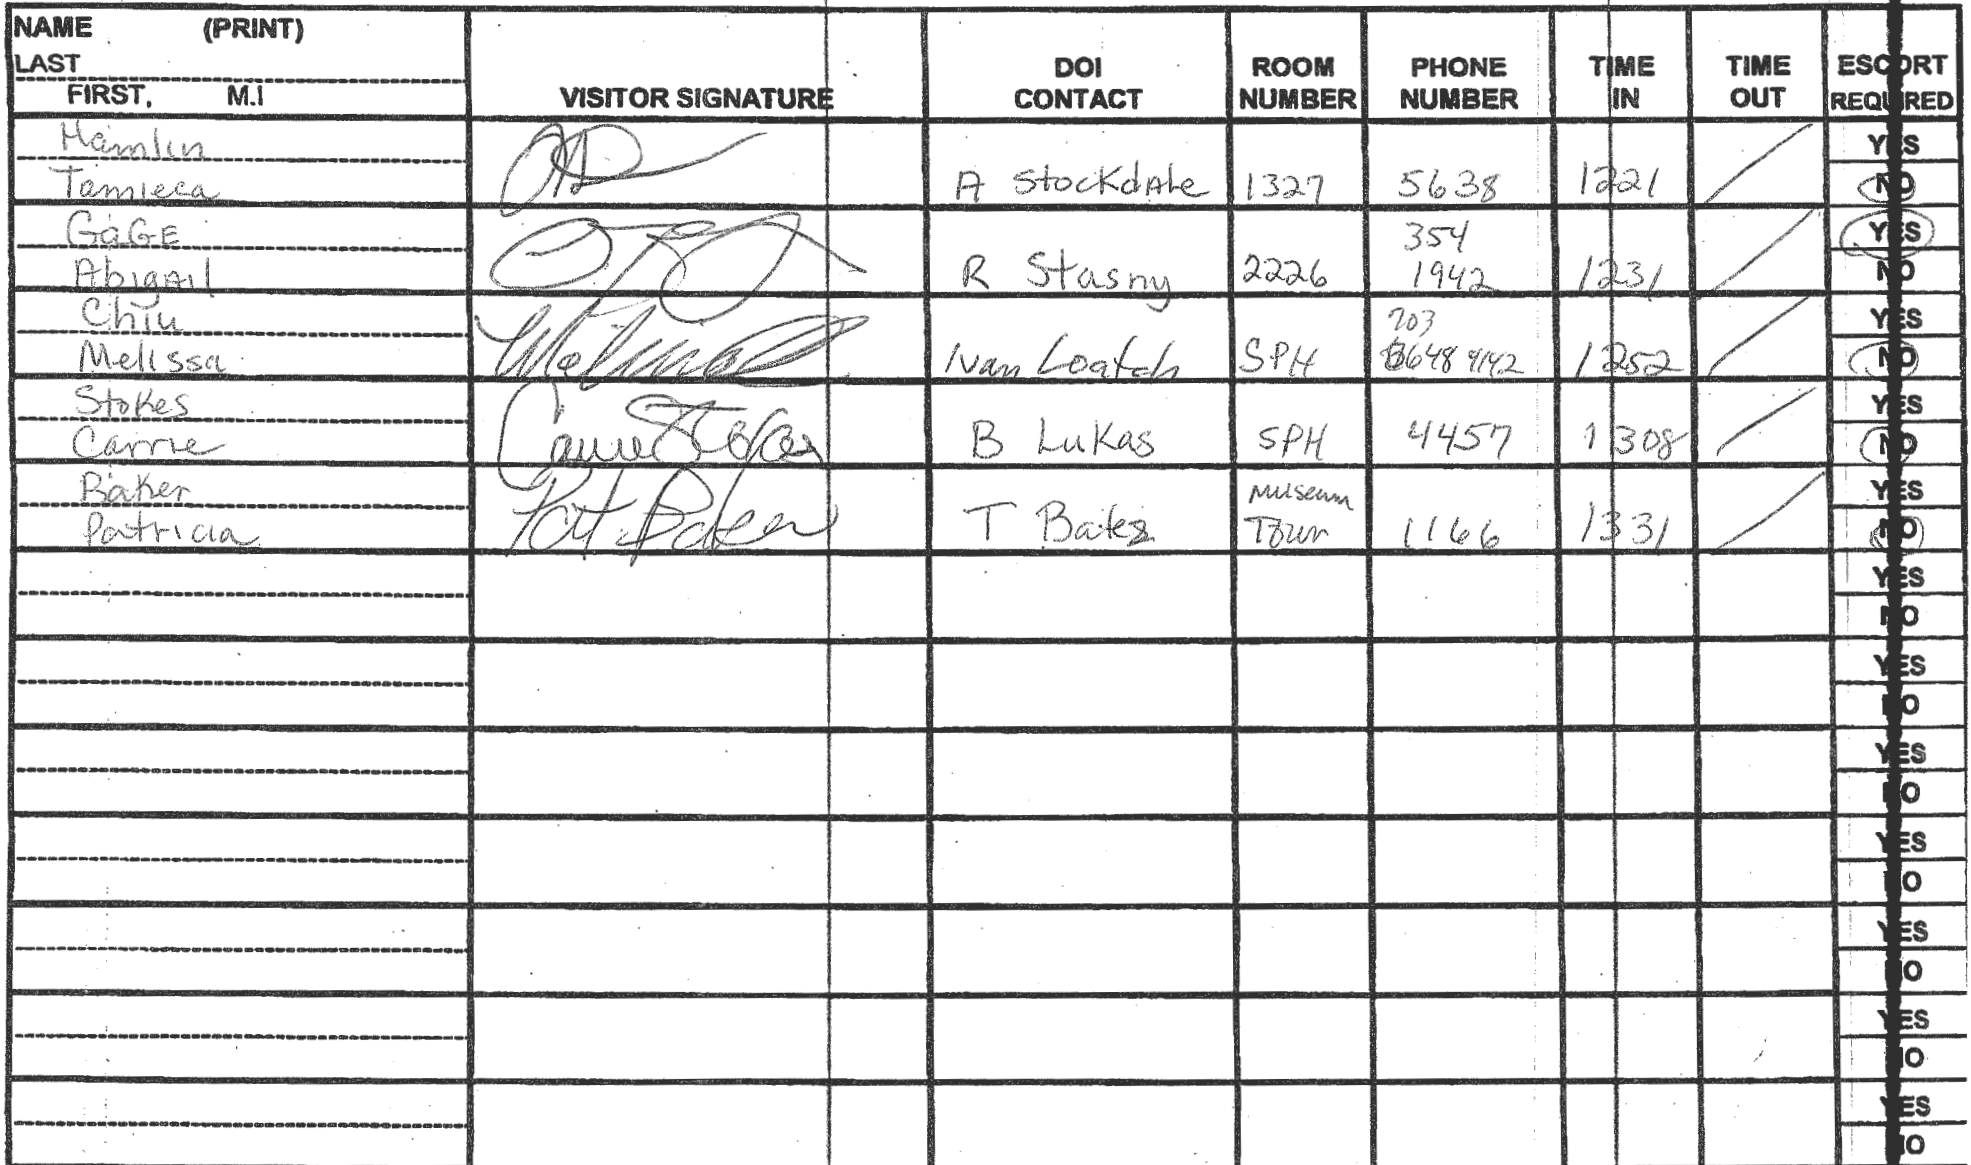 NAME (PRINT)
LAST
FIRST, M.I
VISITOR SIGNATURE
DOI CONTACT
ROOM NUMBER
PHONE NUMBER
TIME IN
TIME OUT
ESCORT REQUIRED
Hamlin
Tamieca
A Stockdale 1327 5638 1221
YES
NO
GaGE
Abigail
R Stasny 2226 354 1942 1231
YES
NO
Chiu
Melissa
SPH 703 648 9142 1252
YES
NO
Stokes
Carrie
Carrie Stokes
B Lukas SPH 4457 1308
YES
NO
Baker
Patricia
Pat Baker
T Bates Museum Tour 1166 1331
YES
NO
YES
NO
YES
NO
YES
NO
YES
NO
YES
NO
YES
NO
YES
NO